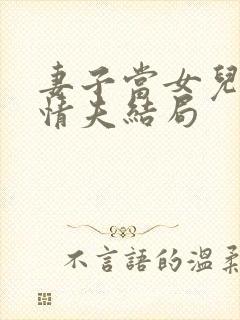 妻子當女兒
情夫結局
不言語的溫柔